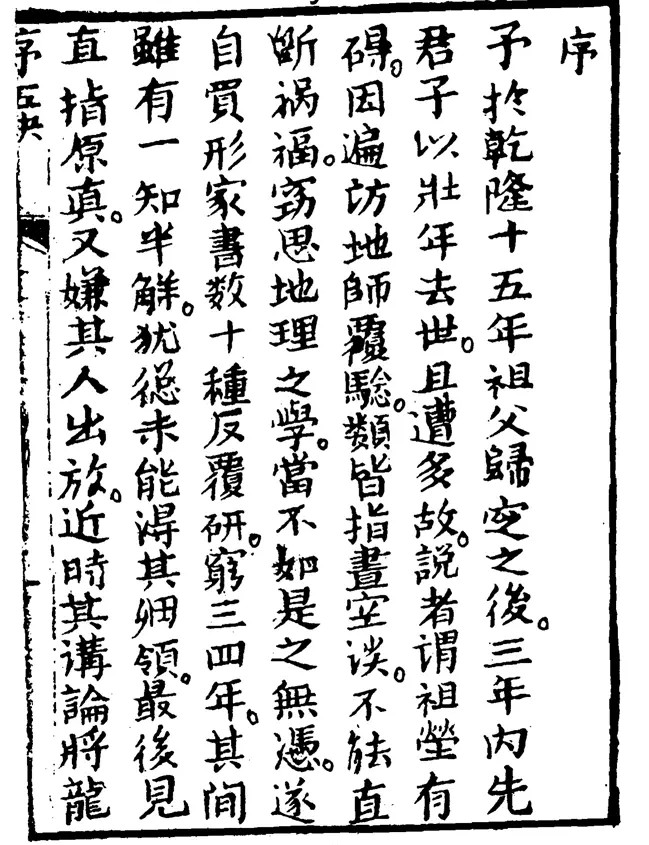 序
予扵乾隆十五年祖父歸窆之後。三年内先
君子以壯年去世。且遭多故。説者谓祖塋有
碍。因遍访地師覆騐。類皆指畫空谈。不能直
斷祸福。窃思地理之學。當不如是之無憑。遂
自買形家書数十種反覆研。窮三四年。其间
雖有一知半觧。犹從未能得其綱領。最後見
直指原真。又嫌其人出放。近時其講論將龍
序